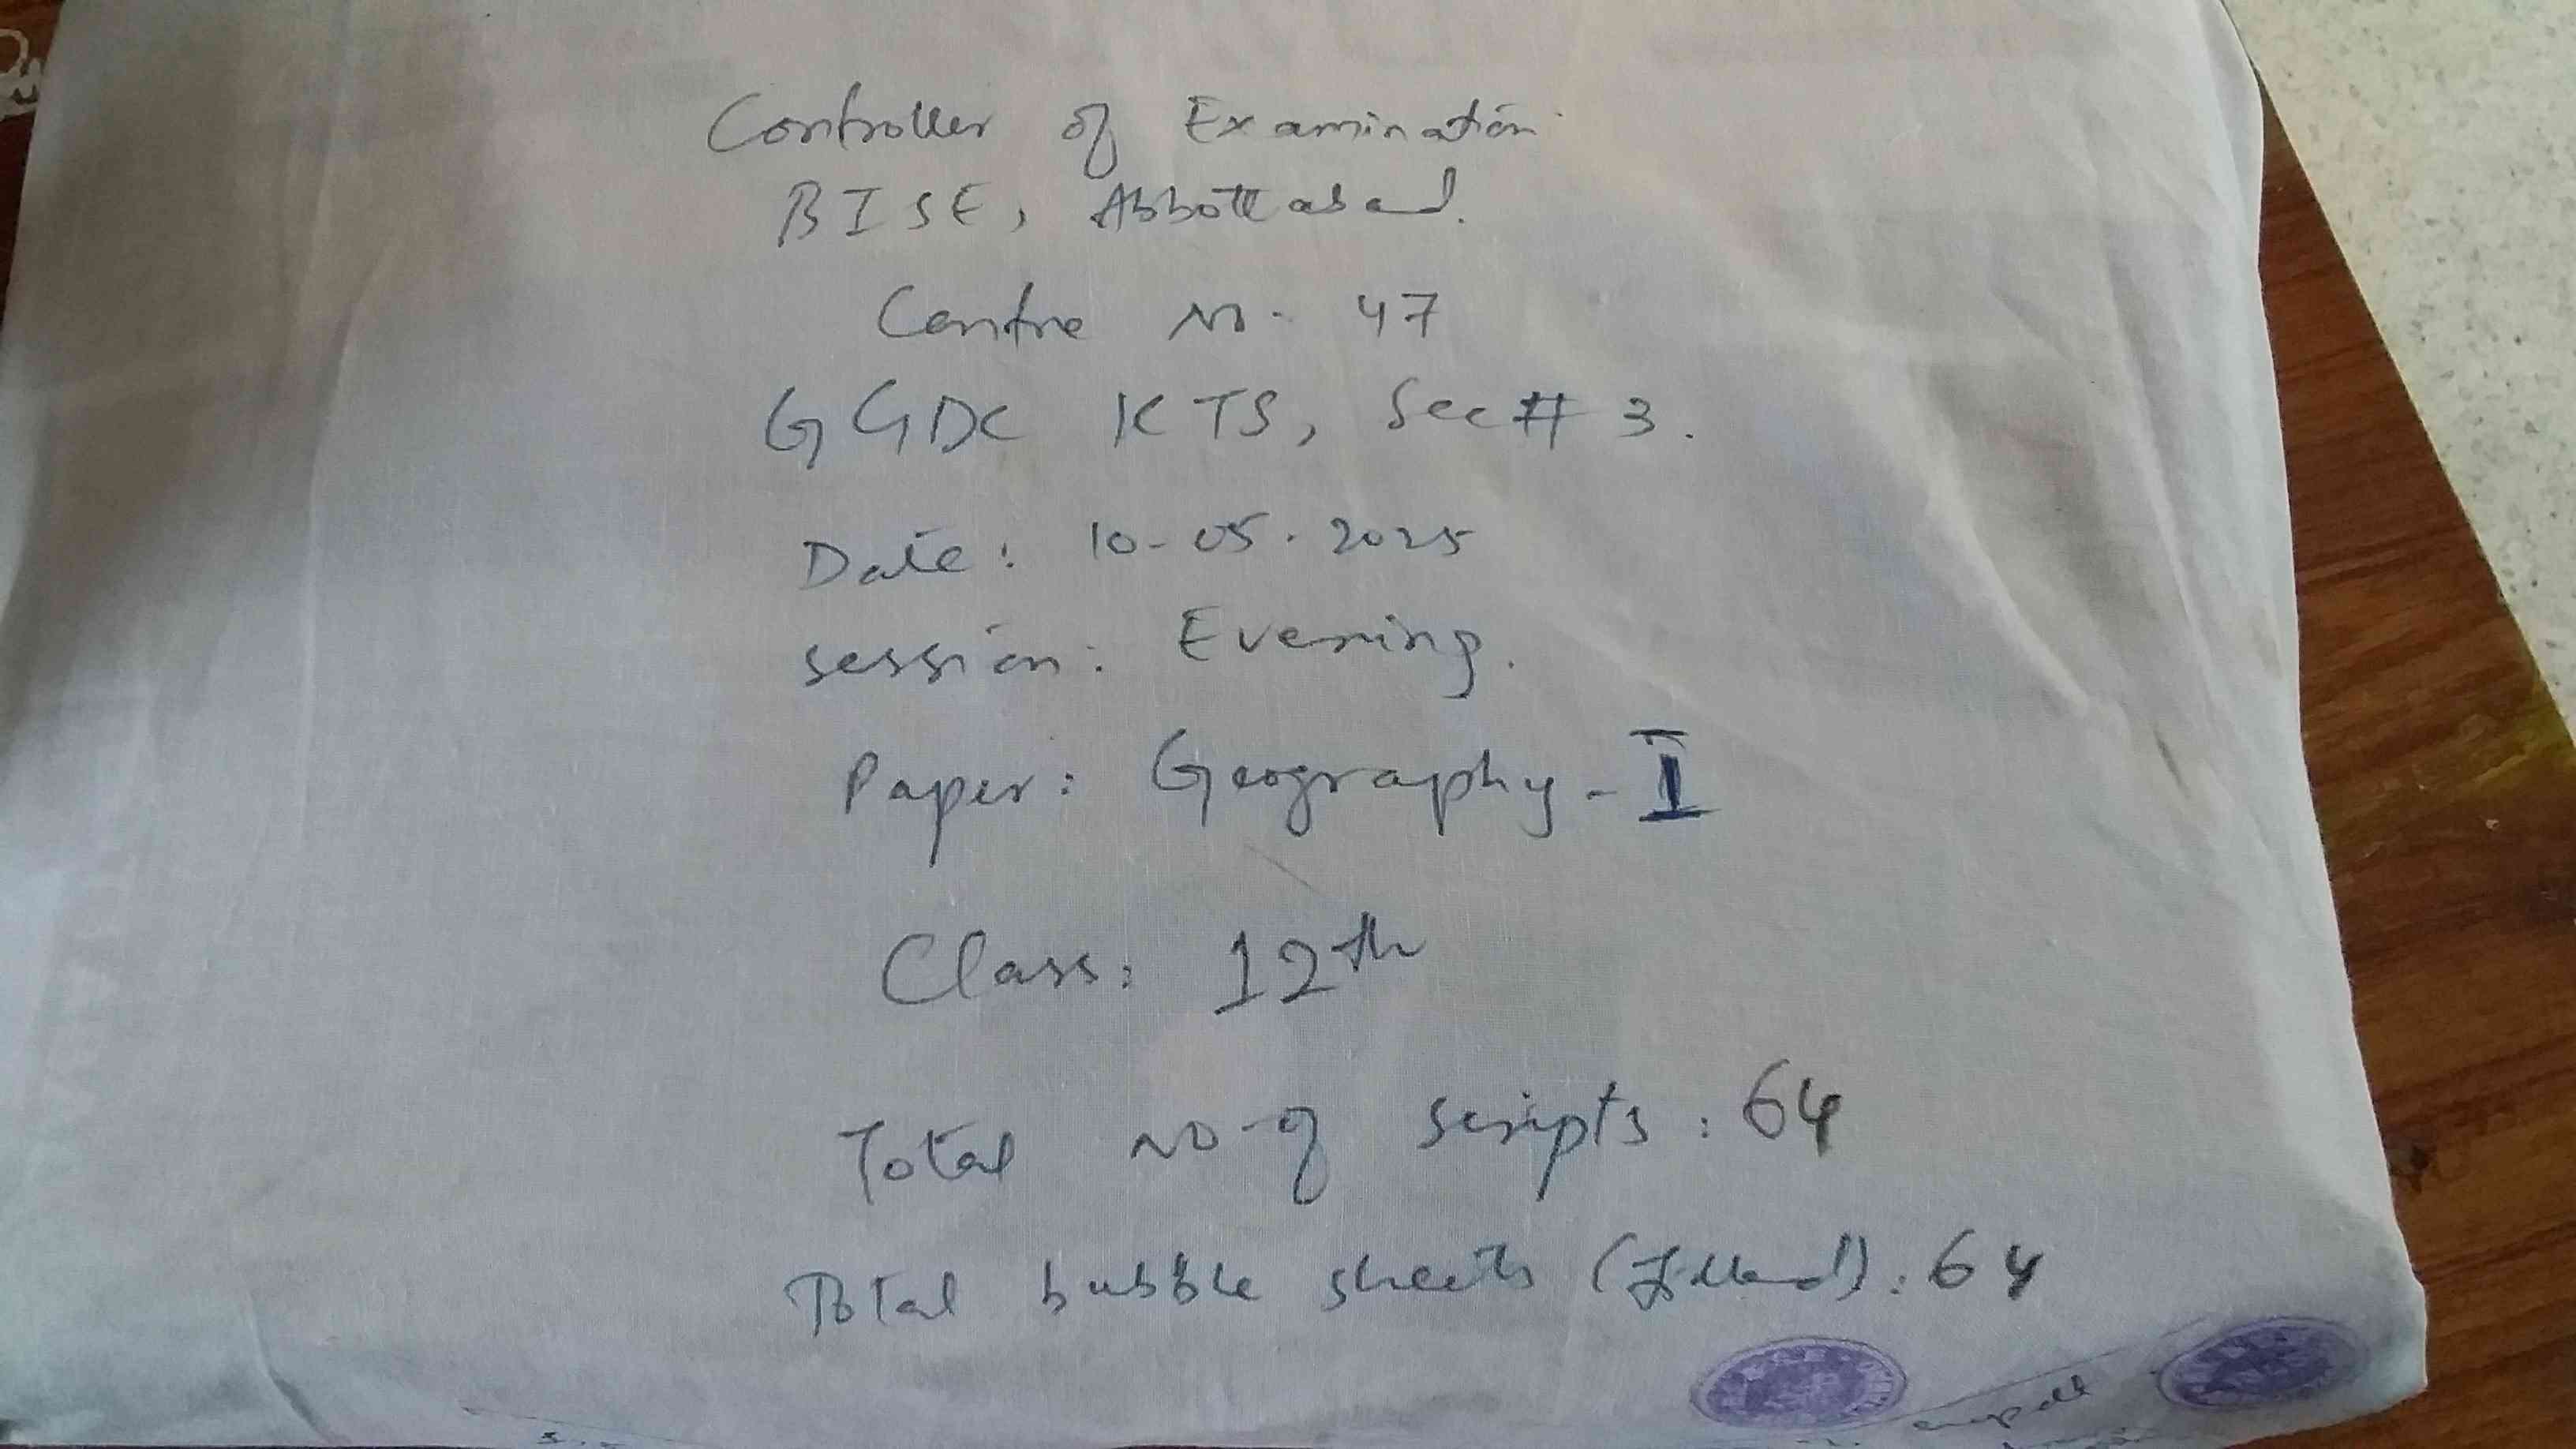 Controller of Examination
BISE, Abbottabad.
Centre No. 47
GGDC KTS, Sec # 3.
Date: 10-05-2025
session: Evening.
Paper: Geography - I
Class: 12th
Total No of scripts: 64
Total bubble sheets (filled): 64